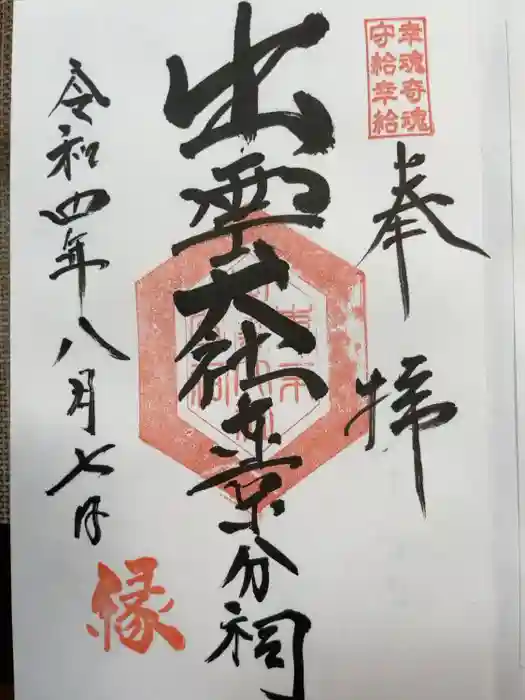 幸魂奇魂
守給幸給
奉拝
出雲大社東京分祠
令和四年八月七日
縁